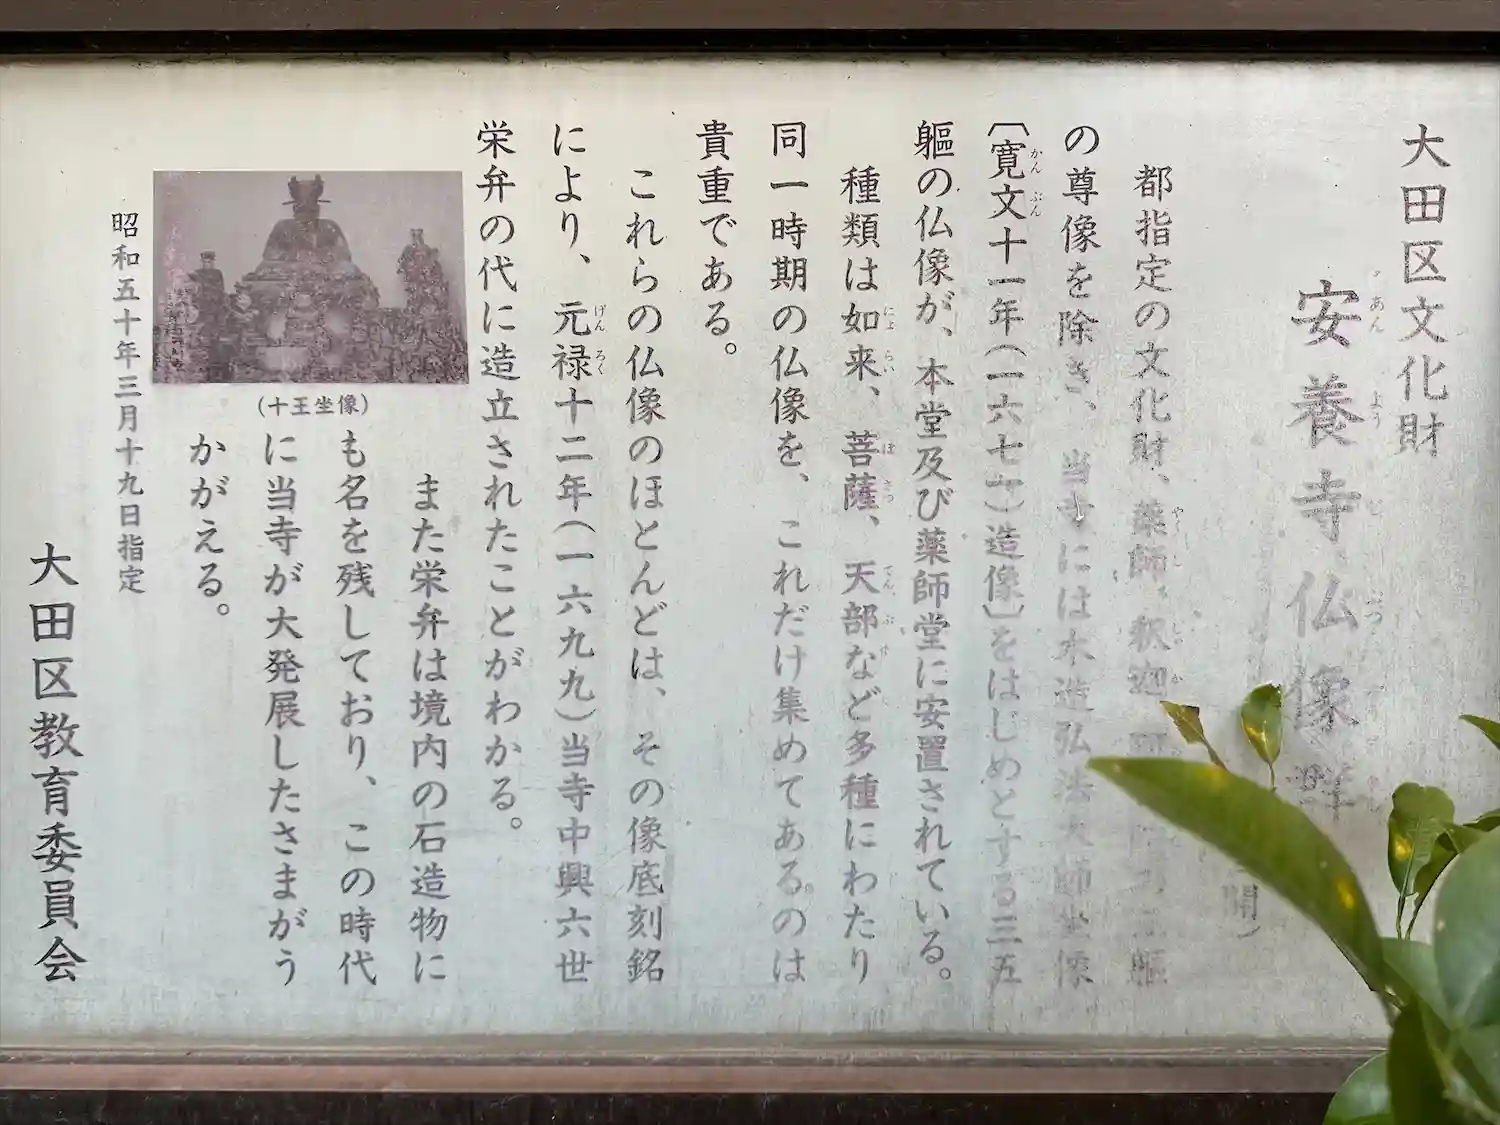 大田区文化財
安養寺仏像群
開)
都指定の文化財、薬師、釈迦、 三軀
の尊像を除き、当寺には木造弘法大師坐像
〔寛文十一年(一六七一)造像〕をはじめとする三五
軀の仏像が、本堂及び薬師堂に安置されている。
種類は如来、菩薩、天部など多種にわたり
同一時期の仏像を、これだけ集めてあるのは
貴重である。
これらの仏像のほとんどは、その像底刻銘
により、元禄十二年(一六九九)当寺中興六世
栄弁の代に造立されたことがわかる。
また栄弁は境内の石造物に
も名を残しており、この時代
に当寺が大発展したさまがう
かがえる。
(十王坐像)
昭和五十年三月十九日指定
大田区教育委員会